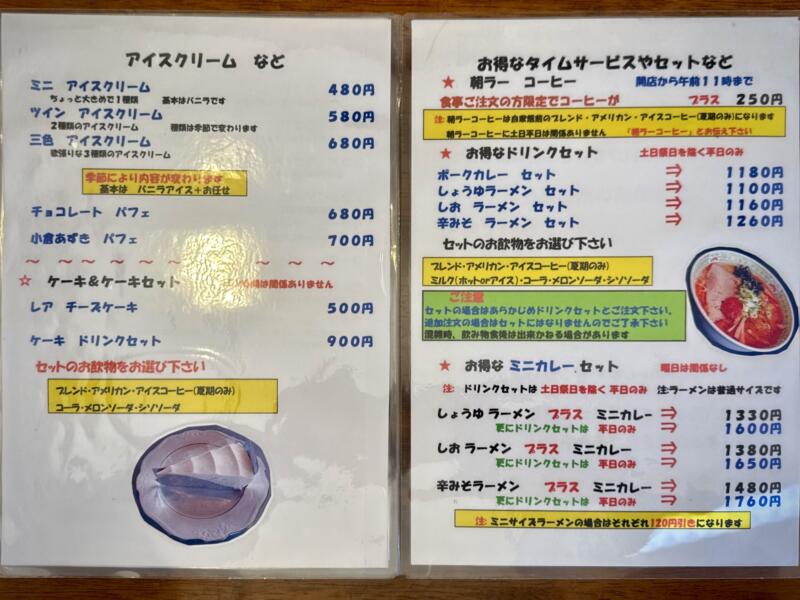 アイスクリーム など
ミニ アイスクリーム 480円
ちょっと大きめで1種類 基本はバニラです
ツイン アイスクリーム 580円
2種類のアイスクリーム 種類は季節で変わります
三色 アイスクリーム 680円
欲張りな3種類のアイスクリーム
季節により内容が変わります
基本は バニラアイス+お任せ
チョコレート パフェ 680円
小倉あずき パフェ 700円
～ ～ ～ ～ ～ ～ ～ ～ ～ ～ ～ ～
☆ ケーキ&ケーキセット は関係ありません
レア チーズケーキ 500円
ケーキ ドリンクセット 900円
セットのお飲物をお選び下さい
ブレンド・アメリカン・アイスコーヒー(夏期のみ)
コーラ・メロンソーダ・シソソーダ
お得なタイムサービスやセットなど
★ 朝ラー コーヒー 開店から午前11時まで
食事ご注文の方限定でコーヒーが プラス 250円
注: 朝ラーコーヒーは自家焙煎のブレンド・アメリカン・アイスコーヒー(夏期のみ)になります
朝ラーコーヒーに土日平日は関係ありません 「朝ラーコーヒー」とお伝え下さい
★ お得なドリンクセット 土日祭日を除く平日のみ
ポークカレー セット ⇒ 1180円
しょうゆラーメン セット ⇒ 1100円
しお ラーメン セット ⇒ 1160円
辛みそ ラーメン セット ⇒ 1260円
セットのお飲物をお選び下さい
ブレンド・アメリカン・アイスコーヒー(夏期のみ)
ミルク(ホットorアイス)・コーラ・メロンソーダ・シソソーダ
ご注意
セットの場合はあらかじめドリンクセットとご注文下さい。
追加注文の場合はセットにはなりませんのでご了承下さい
混雑時、飲み物食後は出来かねる場合があります
★ お得な ミニカレー セット 曜日は関係なし
注: ドリンクセットは 土日祭日を除く 平日のみ 注:ラーメンは普通サイズです
しょうゆ ラーメン プラス ミニカレー ⇒ 1330円
更にドリンクセットは 平日のみ ⇒ 1600円
しお ラーメン プラス ミニカレー ⇒ 1380円
更にドリンクセットは 平日のみ ⇒ 1650円
辛みそラーメン プラス ミニカレー ⇒ 1480円
更にドリンクセットは 平日のみ ⇒ 1760円
注: ミニサイズラーメンの場合はそれぞれ120円引きになります